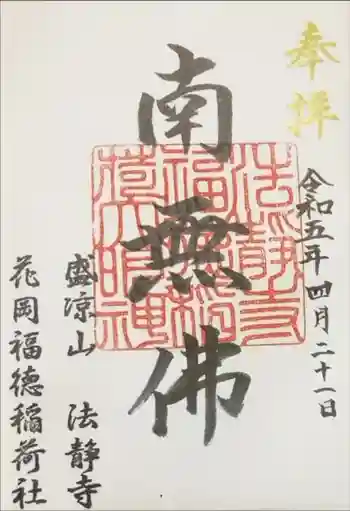 奉拝
令和五年四月二十一日
南無佛
法静寺
福徳稲荷
大明神
盛凉山 法静寺
花岡福德稲荷社